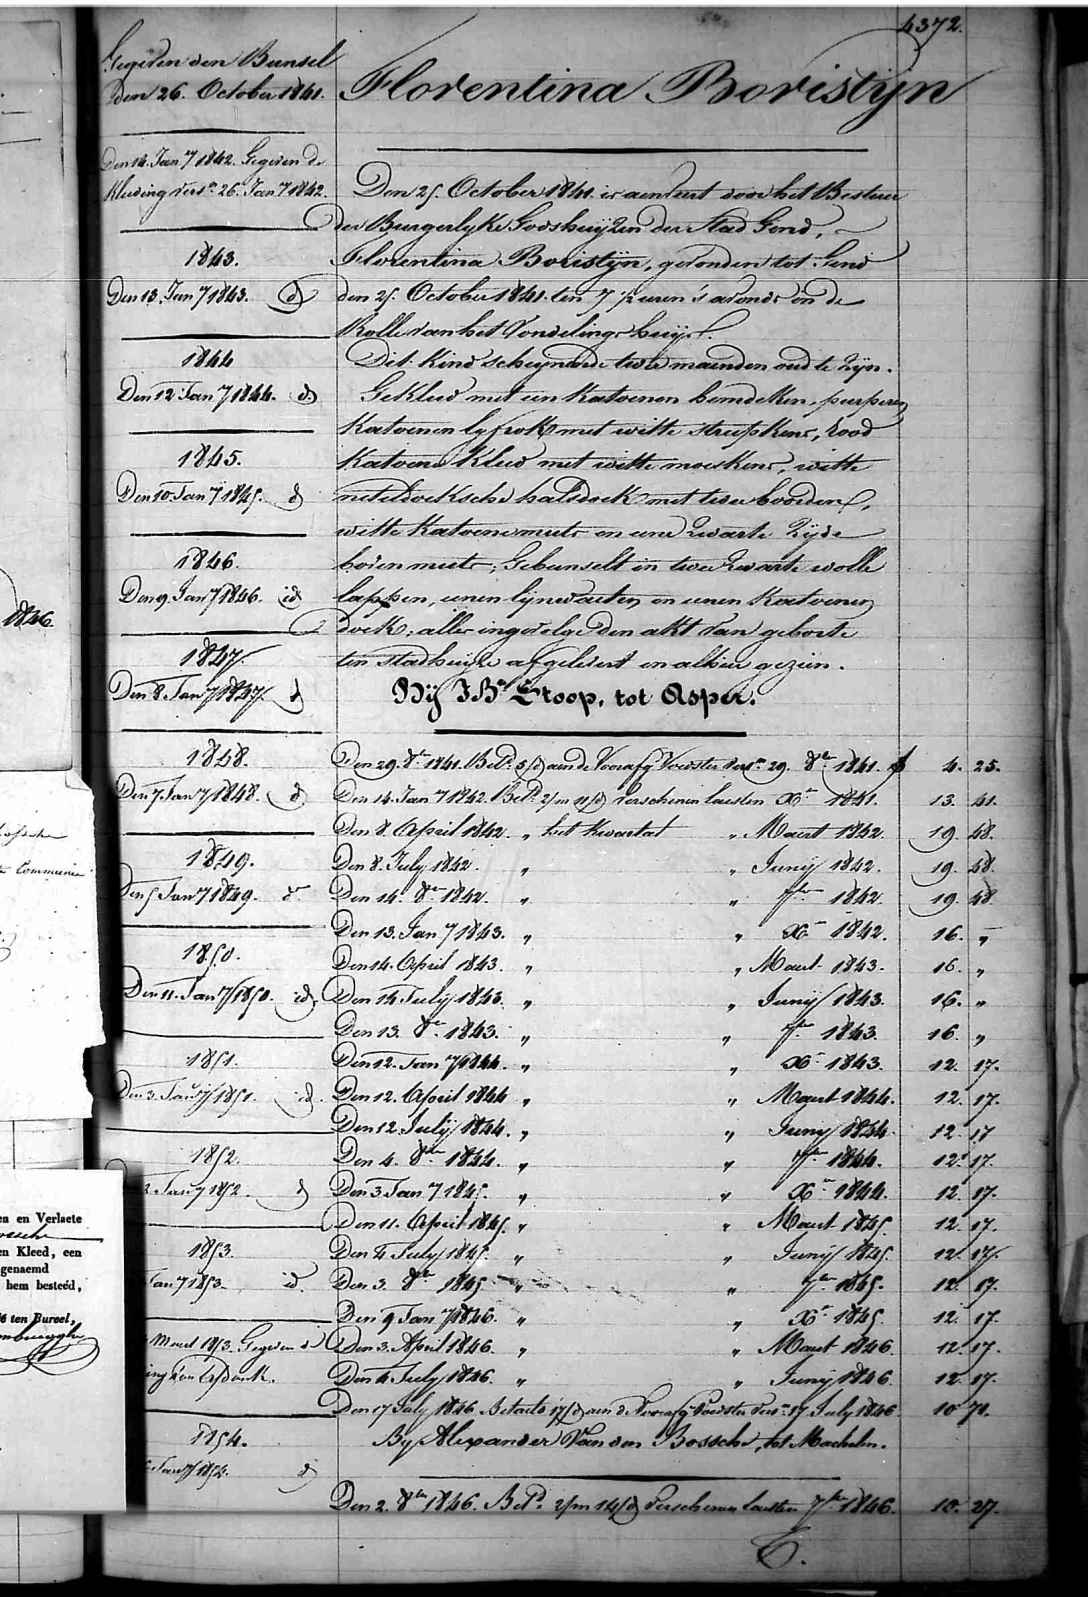 4372.
Gegeven den Bunsel
den 26. October 1841.
Florentina Boristijn
Den 14. Jan 7 1842. Gegeven de
Kleeding vers. 26. Jan 7 1842.
Den 25. October 1841. is aenveert door het Bestier
der Burgerlyke Godshuijzen der Stad Gend,
Florentina Boristijn, gevonden tot Gend
den 25. October 1841. ten 7 1/2 uren 's avonds on de
Rolle van het Vondelings huijs.
Dit Kind scheynende twee maenden oud te zyn.
Gekleed met een Katoenen hemdeken, purperen
Katoenen lyfrok met witte streepkens, rood
Katoene Kleed met witte moeskens, witte
neteldoeksche halsdoek met twee boorden,
witte Katoene muts en eene zwarte zyde
boven muts; Gebunselt in twee zwarte wolle
lappen, eenen lynwaeten en eenen Katoenen
doek; alles ingevolge den akt van geboorte
ten stadhuize afgelevert en alhier gezien.
Bij J. Bte Stoop, tot Asper.
1843.
Den 13. Jan 7 1843. d
1844
Den 12 Jan 7 1844. d
1845.
Den 10 Jan 7 1845. d
1846.
Den 9 Jan 7 1846. id
1847.
Den 8 Jan 7 1847. d
1848.
Den 7 Jan 7 1848. d
1849.
Den 5 Jan 7 1849. d
1850.
Den 11. Jan 7 1850. id.
1851.
Den 3. Jan 7 1851. id.
1852.
2 Jan 7 1852. d
1853.
Jan 7 1853. id
Maert 1853. Gegeven d
1854.
Jan 7 1854. d
Den 29. 8re 1841. Betd. 5/d aen de Voorafg Voedster vers. 29. 8re 1841. f 4. 25.
Den 14. Jan 7 1842. Betd. 2/m 11/d verschenen laesten Xre 1841. 13. 41.
Den 8. April 1842. " het Kwartal " Maert 1842. 19. 48.
Den 8. July 1842. " " Junij 1842. 19. 48.
Den 14. 8re 1842. " " 7bre 1842. 19. 48.
Den 13. Jan 7 1843. " " Xre 1842. 16. "
Den 14. April 1843. " " Maert 1843. 16. "
Den 14 July 1843. " " Junij 1843. 16. "
Den 13. 8re 1843. " " 7bre 1843. 16. "
Den 12. Jan 7 1844. " " Xre 1843. 12. 17.
Den 12. April 1844. " " Maert 1844. 12. 17.
Den 12 July 1844. " " Juny 1844. 12. 17
Den 4. 8bre 1844. " " 7bre 1844. 12. 17.
Den 3 Jan 7 1845. " " Xre 1844. 12. 17.
Den 11. April 1845. " " Maert 1845. 12. 17.
Den 4 July 1845. " " Junij 1845. 12. 17.
Den 3. 8bre 1845 " " 7bre 1845. 12. 17.
Den 9 Jan 7 1846. " " Xre 1845. 12. 17.
Den 3. April 1846. " " Maert 1846. 12. 17.
Den 4. July 1846. " " Junij 1846. 12. 17.
Den 17 July 1846. Betaelt 17/d aen de Voorafg Voedster vers. 17 July 1846 10 71.
By Alexander Van den Bossche, tot Machelen.
Den 2. 8bre 1846. Betd. 2/m 14/d verschenen laesten 7bre 1846. 10. 27.
1846.
Communie
en en Verlaete
en Kleed, een
genaemd
hem besteéd,
ten Bureel,